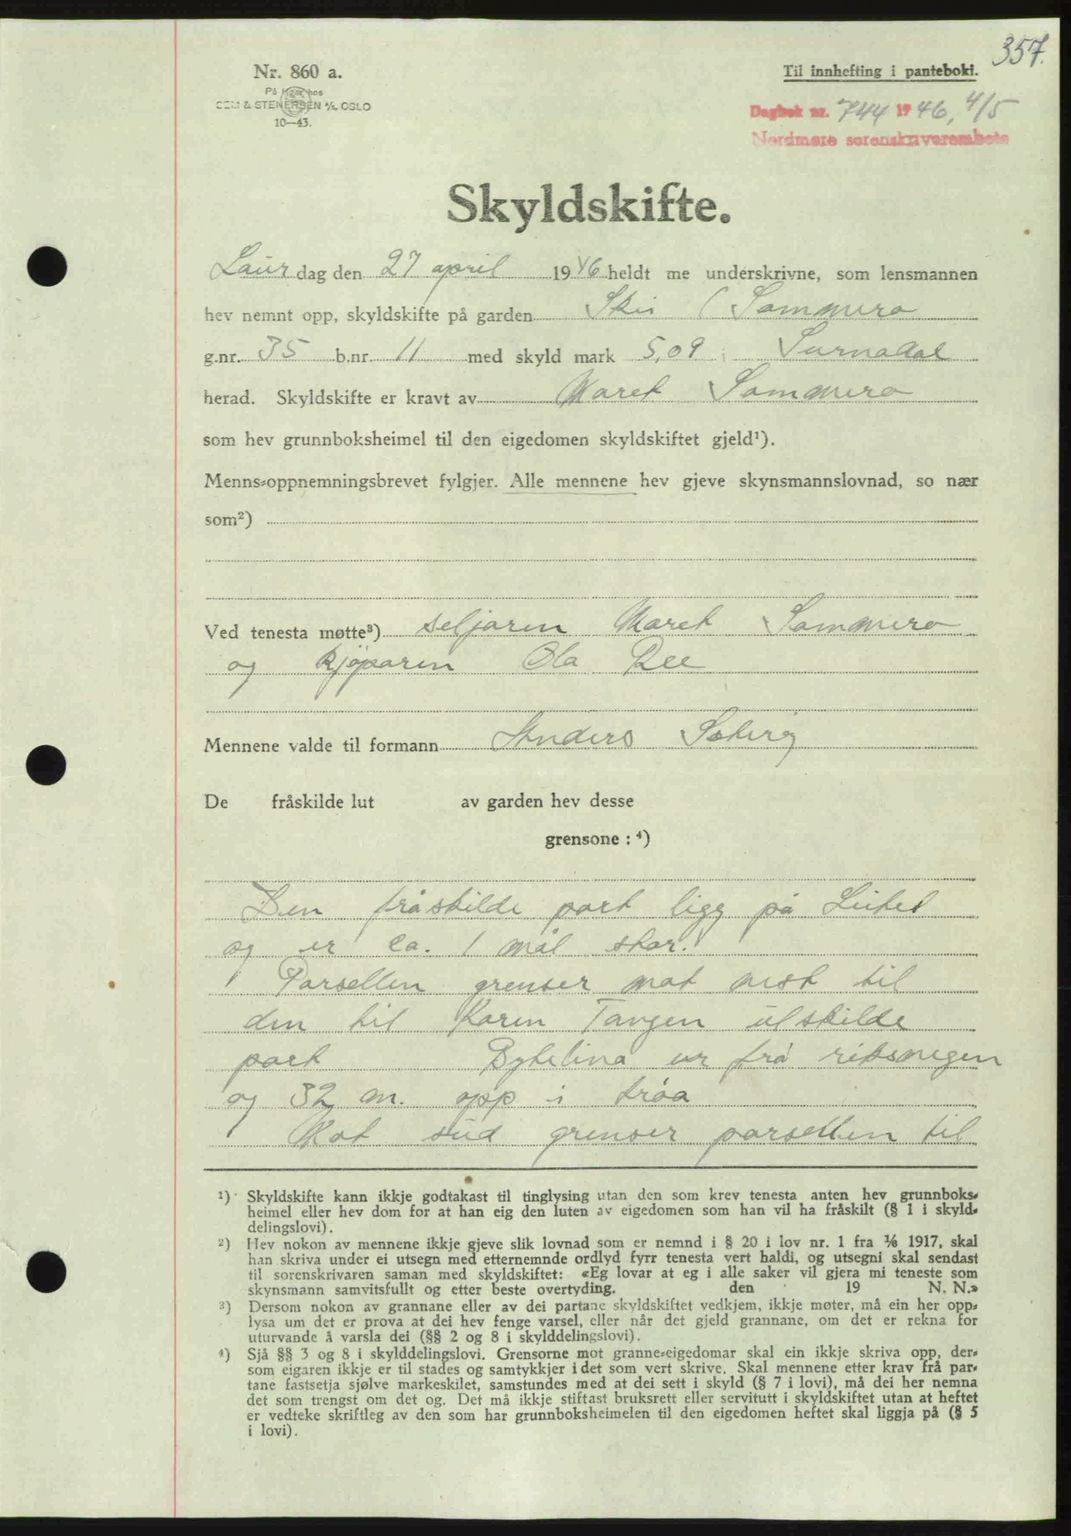 357.
Nr. 860 a.
Til innhefting i pantebok.
På lager hos
SEM & STENERSEN A/S, OSLO
10—43.
Dagbok nr. 744 1946, 4/5
Nordmøre sorenskriverembete
Skyldskifte.
Laurdag den 27 april 1946 heldt me underskrivne, som lensmannen
hev nemnt opp, skyldskifte på garden Skei (Sommero
g.nr. 35 b.nr. 11 med skyld mark 5,09 i Surnadal
herad. Skyldskifte er kravt av Maret Sommero
som hev grunnboksheimel til den eigedomen skyldskiftet gjeld¹).
Menns-oppnemningsbrevet fylgjer. Alle mennene hev gjeve skynsmannslovnad, so nær
som²)
Ved tenesta møtte³) seljaren Maret Sommero
og kjöparen Ola Ree
Mennene valde til formann Anders
De fråskilde lut av garden hev desse
grensone : ⁴)
Den fråskilde part ligg på
og er ca. 1 mål stor.
Parsellen grenser mot vest til
den til Karen Tangen utskilde
part Bytelina er frå riksvegen
og 32 m. opp i tröa
Mot süd grenser parsellen til
¹) Skyldskifte kann ikkje godtakast til tinglysing utan den som krev tenesta anten hev grunnboks-
heimel eller hev dom for at han eig den luten av eigedomen som han vil ha fråskilt (§ 1 i skyld-
delingslovi).
²) Hev nokon av mennene ikkje gjeve slik lovnad som er nemnd i § 20 i lov nr. 1 fra ⅙ 1917, skal
han skriva under ei utsegn med etternemnde ordlyd fyrr tenesta vert haldi, og utsegni skal sendast
til sorenskrivaren saman med skyldskiftet: «Eg lovar at eg i alle saker vil gjera mi teneste som
skynsmann samvitsfullt og etter beste overtyding. den 19 N. N.»
³) Dersom nokon av grannane eller av dei partane skyldskiftet vedkjem, ikkje møter, må ein her opp-
lysa um det er prova at dei hev fenge varsel, eller når det gjeld grannane, om det er rekna for
uturvande å varsla dei (§§ 2 og 8 i skylddelingslovi).
⁴) Sjå §§ 3 og 8 i skylddelingslovi. Grensorne mot granne-eigedomar skal ein ikkje skriva opp, der-
som eigaren ikkje er til stades og samtykkjer i det som vert skrive. Skal mennene etter krav frå par-
tane fastsetja sjølve markeskilet, samstundes med at dei sett i skyld (§ 7 i lovi), må dei her nemna
det som trengst om det og. Det må ikkje stiftast bruksrett eller servitutt i skyldskiftet utan at heftet
er vedteke skriftleg av den som har grunnboksheimelen til den eigedomen heftet skal liggja på (§ 5
i lovi).